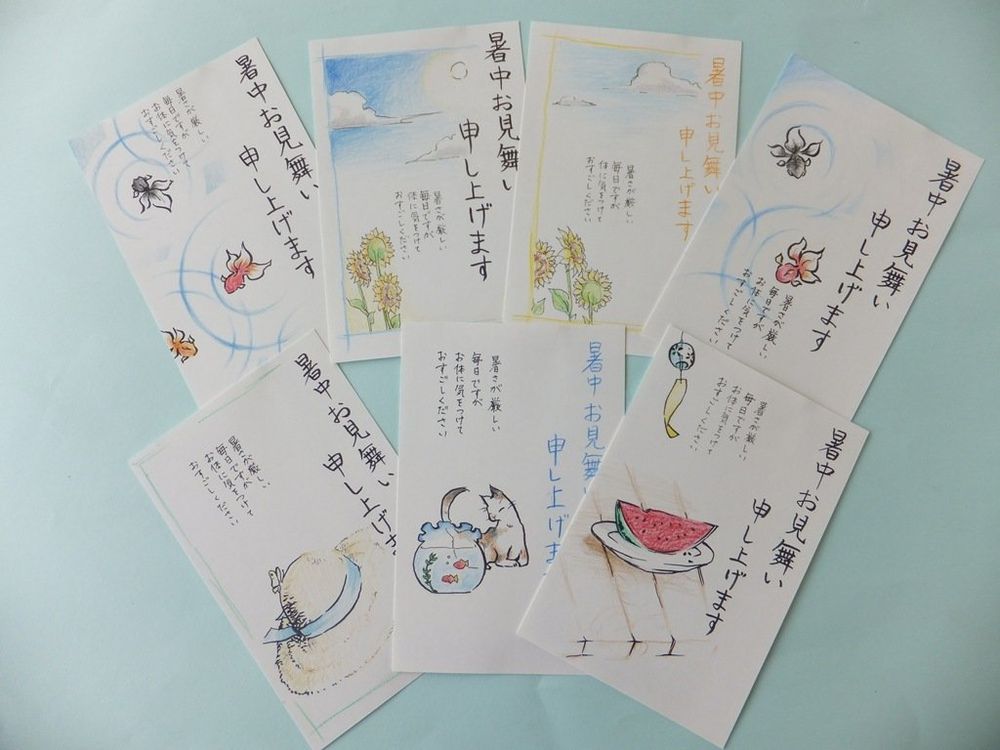 暑中お見舞い
申し上げます
暑さが厳しい
毎日ですが
お体に気をつけて
おすごしください
暑中お見舞い
申し上げます
暑さが厳しい
毎日ですが
体に気をつけて
おすごしください
暑中お見舞い
申し上げます
暑さが厳しい
毎日ですが
体に気をつけて
おすごしください
暑中お見舞い
申し上げます
暑さが厳しい
毎日ですが
お体に気をつけて
おすごしください
暑中お見舞い
申し上げます
暑さが厳しい
毎日ですが
お体に気をつけて
おすごしください
暑中お見舞い
申し上げます
暑さが厳しい
毎日ですが
お体に気をつけて
おすごしください
暑中お見舞い
申し上げます
暑さが厳しい
毎日ですが
お体に気をつけて
おすごしください